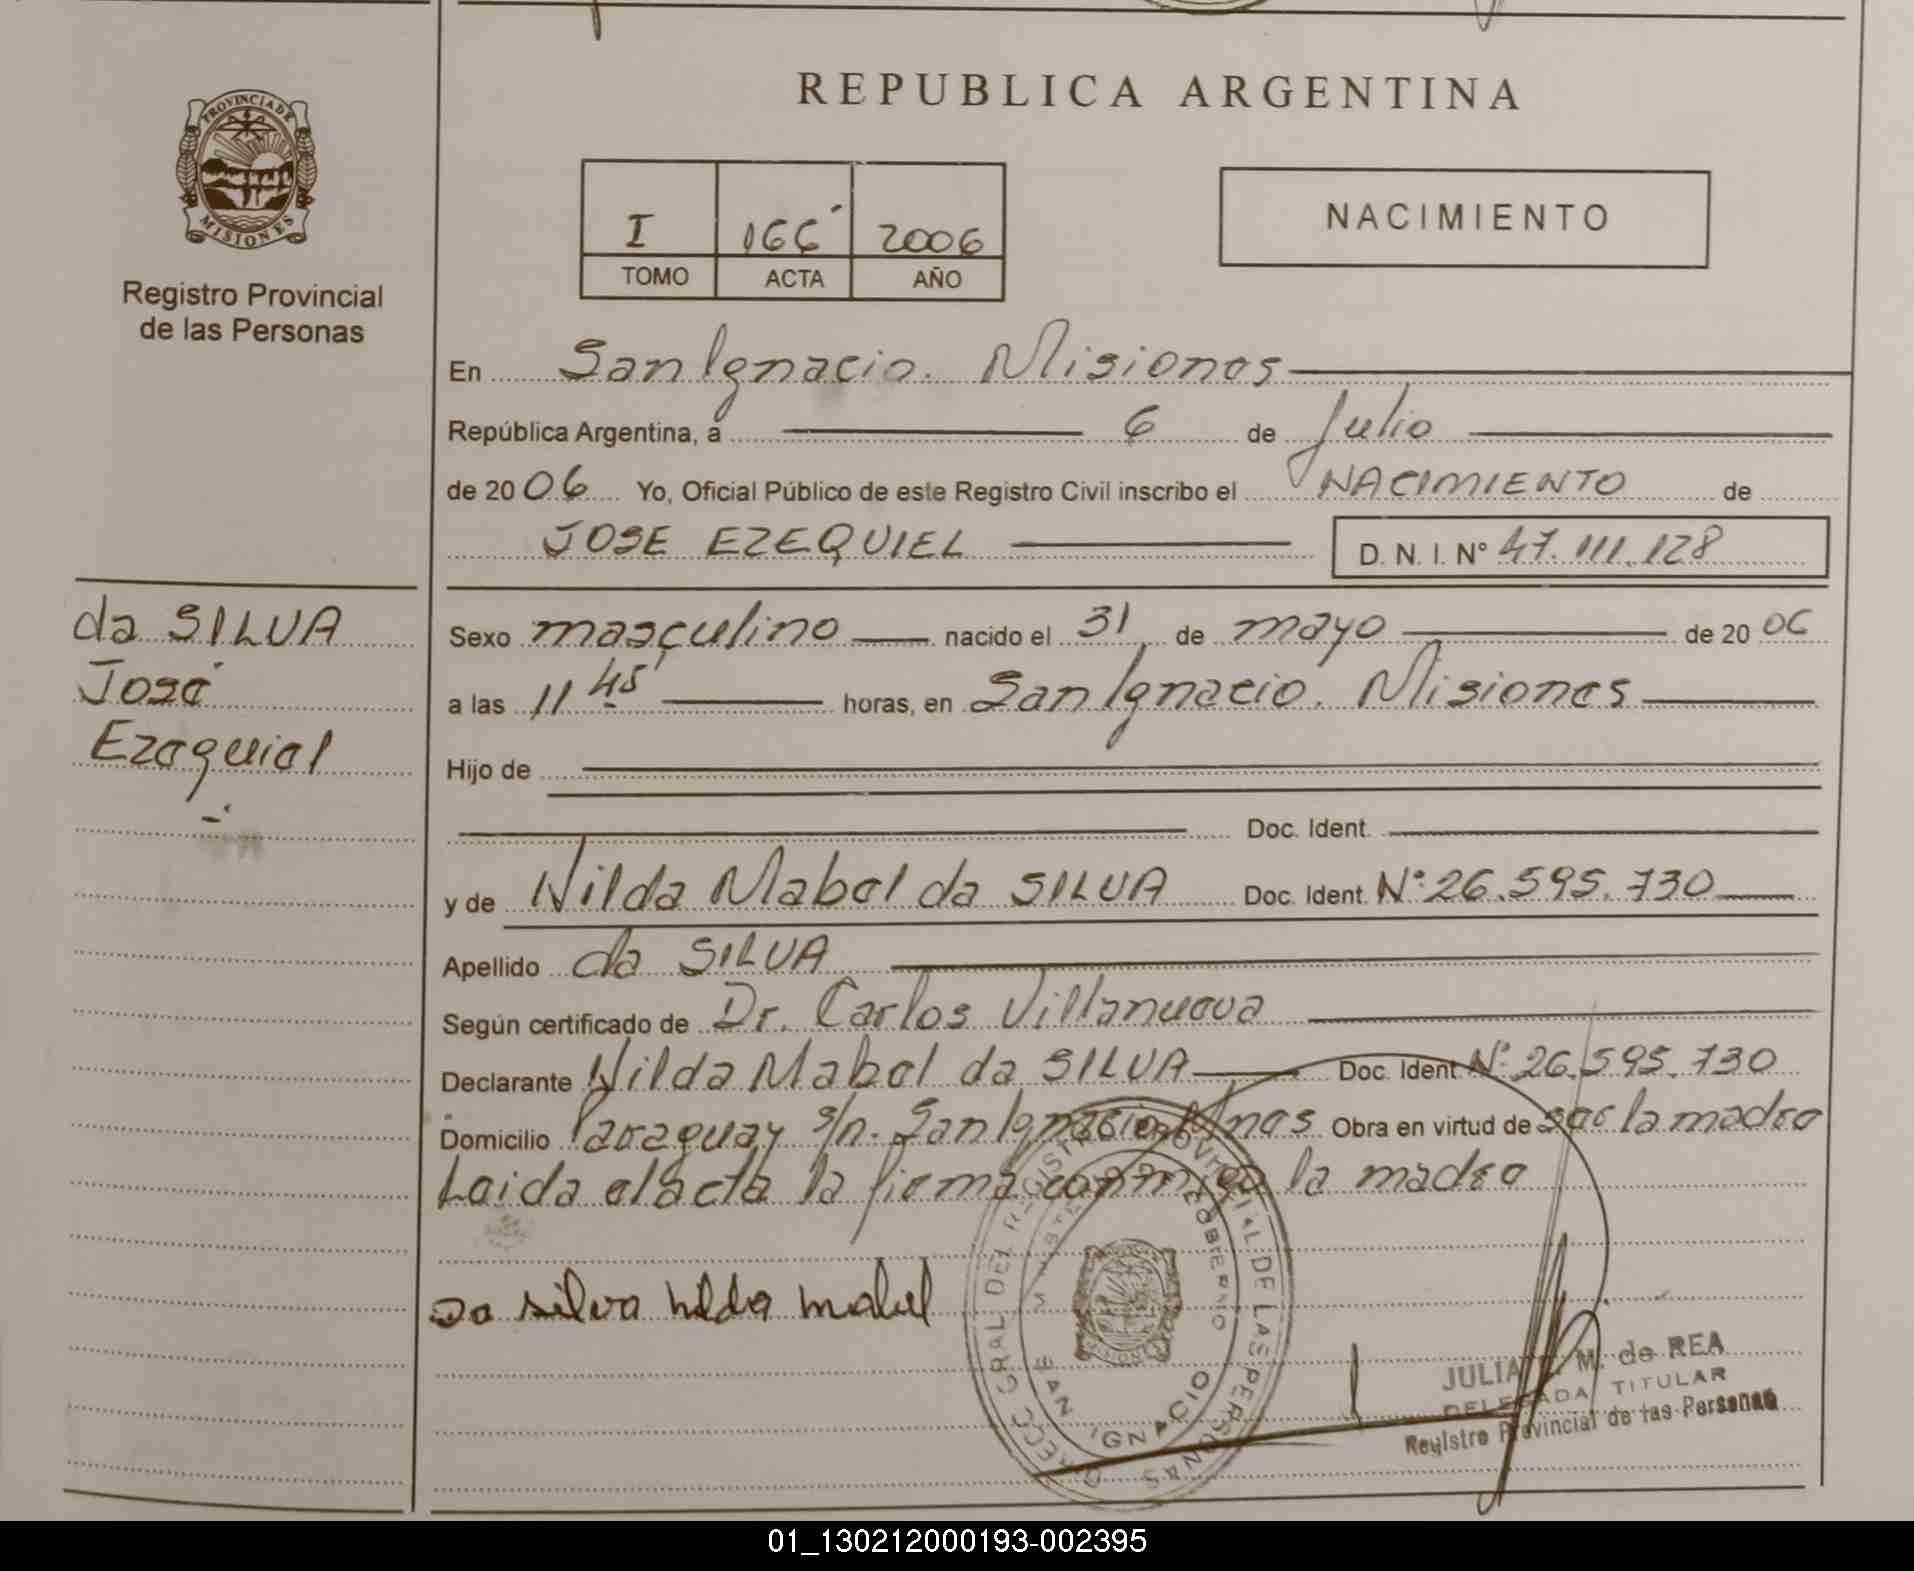 REPUBLICA ARGENTINA
PROVINCIA DE MISIONES
Registro Provincial
de las Personas
I 166 2006
TOMO ACTA AÑO
NACIMIENTO
En San Ignacio. Misiones
República Argentina, a 6 de Julio
de 2006 Yo, Oficial Público de este Registro Civil inscribo el NACIMIENTO de
JOSE EZEQUIEL D. N. I. N° 47.111.128
da SILVA
José
Ezequiel
Sexo masculino nacido el 31 de mayo de 2006
a las 11 45 horas, en San Ignacio. Misiones
Hijo de
Doc. Ident.
y de Nilda Mabel da SILVA Doc. Ident. N° 26.595.730
Apellido da SILVA
Según certificado de Dr. Carlos Villanueva
Declarante Nilda Mabel da SILVA Doc. Ident N° 26.595.730
Domicilio Paraguay s/n. San Ignacio Mnes Obra en virtud de ser la madre
Leida el acta la firma conmigo la madre
Da silva nilda mabel
DIRECC GRAL DEL REGISTRO PROVINCIAL DE LAS PERSONAS
MINISTERIO GOBIERNO
SAN IGNACIO
JULIA M. de REA
DELEGADA TITULAR
Registro Provincial de las Personas
01_130212000193-002395